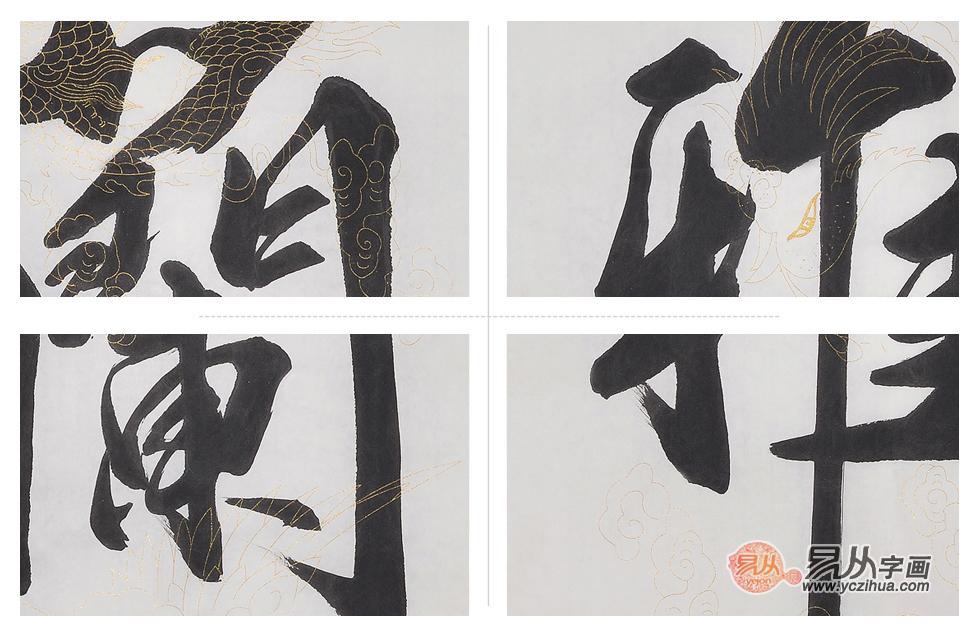 蘭 雅
易从 易从字画
www.yczihua.com